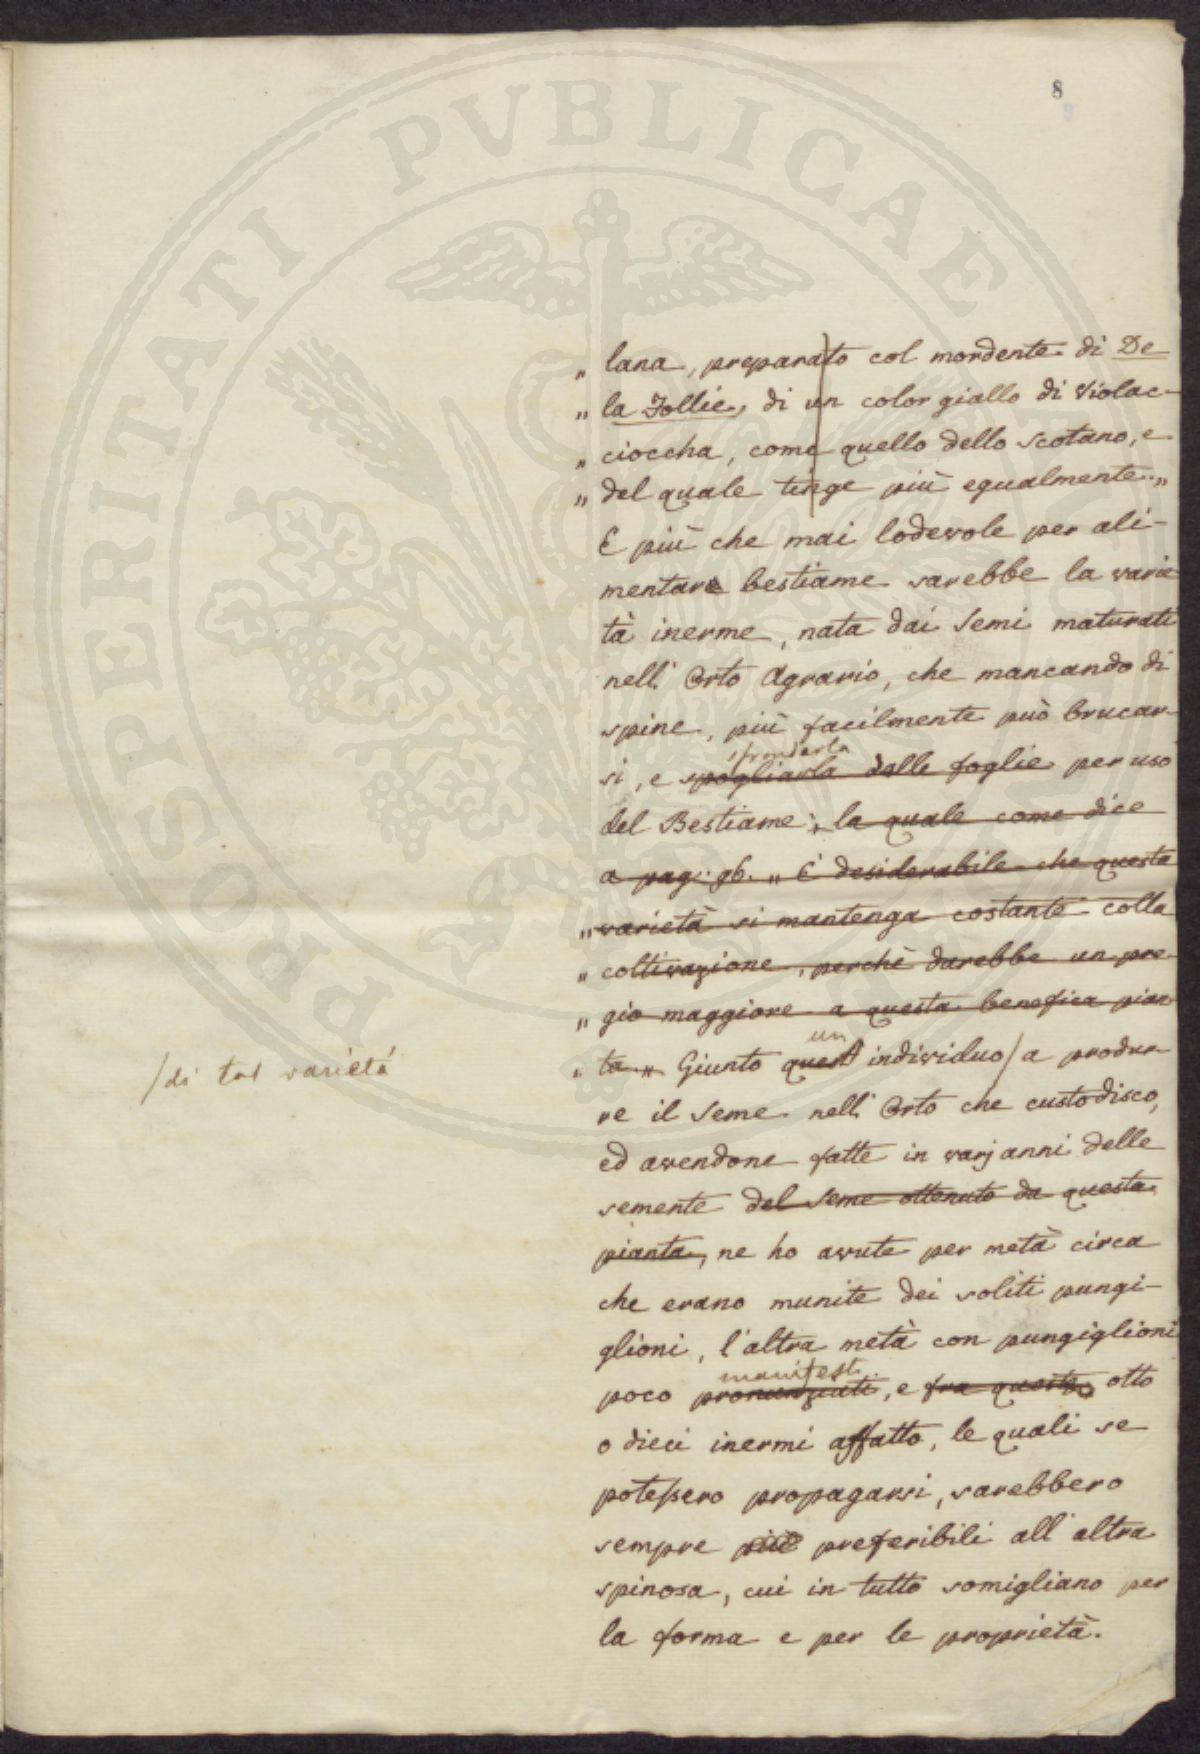 8
„ lana, preparato col mordente di De
„ la Follie, di un color giallo di Violac-
„ cioccha, come quello dello Scotano, e
„ del quale tinge più egualmente „
E più che mai lodevole per ali-
mentare bestiame sarebbe la varie
tà inerme, nata dai Semi maturati
nell' Orto Agrario, che mancando di
spine, più facilmente può brucar-
sfrondarla
si, e spogliarla delle foglie per uso
del Bestiame; la quale come dice
a pag. 96. „ È desiderabile che questa
„ varietà si mantenga costante colla
„ coltivazione, perchè darebbe un pre
„ gio maggiore a questa benefica pian
un
„ ta „ Giunto quest individuo / a produr-
/di tal varietà
re il Seme nell' Orto che custodisco,
ed avendone fatte in varj anni delle
semente del Seme ottenuto da questa
pianta, ne ho avute per metà circa
che erano munite dei soliti pungi-
glioni, l'altra metà con pungiglioni
manifesti
poco pronunziati, e fra queste otto
o dieci inermi affatto, le quali se
potessero propagarsi, sarebbero
sempre più preferibili all altra
spinosa, cui in tutto somigliano per
la forma e per le proprietà.
PROSPERITATI PVBLICAE